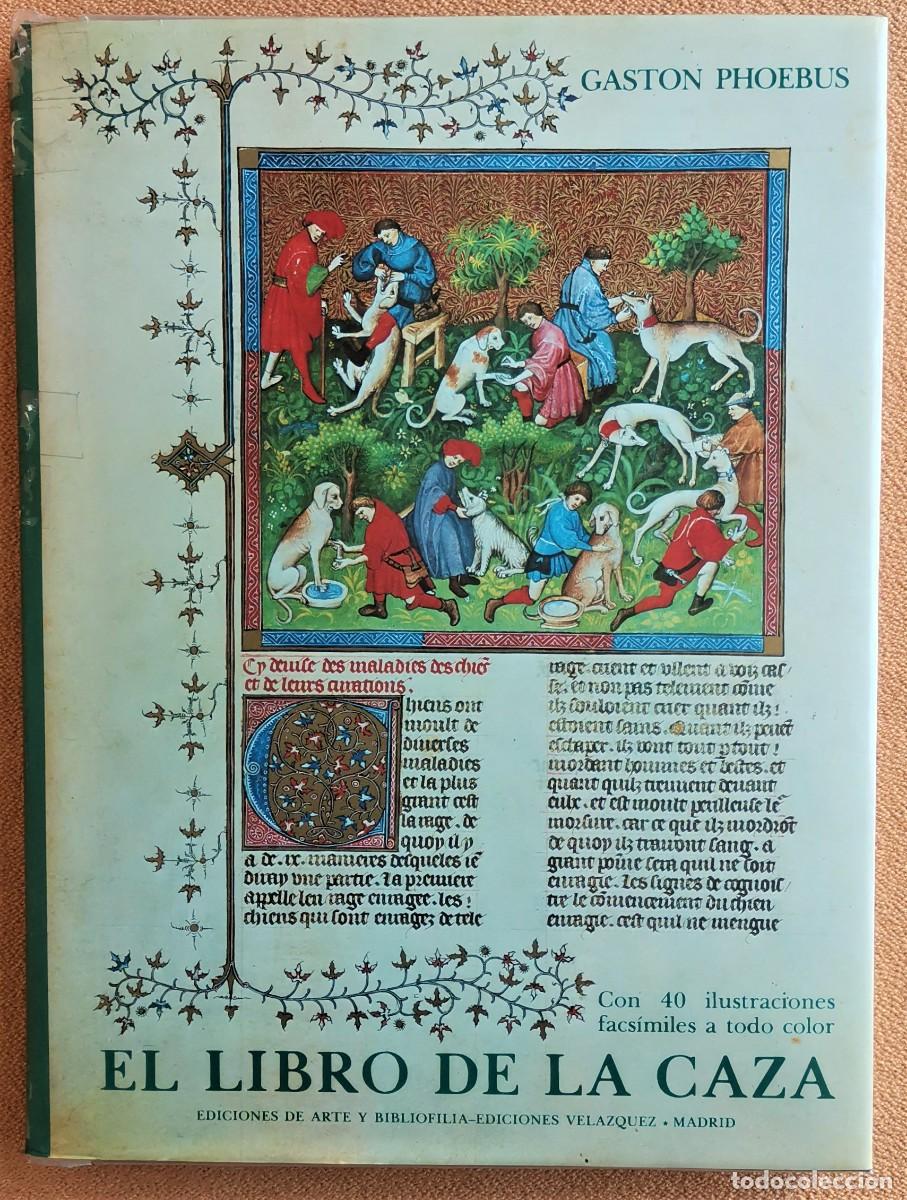 GASTON PHOEBUS
Cy deuise des maladies des chiẽs
et de leurs curations.
Chiens ont
moult de
diuerses
maladies
et la plus
grant cest
la rage. de
quoy il y
a de .ix. manieres desqueles ie
diray vne partie. La premiere
appelle len rage enragee. les
chiens qui sont enragez de tele
rage crient et vllent a voiz cas/
se. et non pas telement cõme
ilz souloient crier quant ilz
estoient sains. Quant ilz peuẽt
eschaper. ilz vont tout partout
mordant hommes et bestes. et
quant quilz treuuent deuant
eulx. et est moult perilleuse leˉ
morsure. car ce que ilz mordrõt
de quoy ilz trairont sang. a
grant poine sera quil ne soit
enragie. Les signes de cognois/
tre le cõmencement du chien
enragie. cest quil ne mengue
Con 40 ilustraciones
facsímiles a todo color
EL LIBRO DE LA CAZA
EDICIONES DE ARTE Y BIBLIOFILIA-EDICIONES VELAZQUEZ • MADRID
todocoleccion